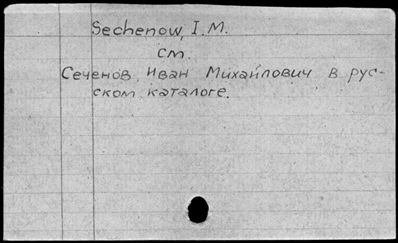 Sechenow, I.M.
см.
Сеченов, Иван Михайлович в рус-
ском каталоге.